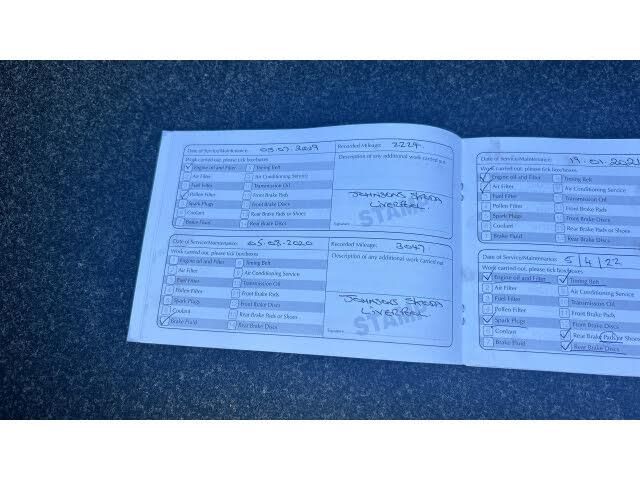 Date of Service/Maintenance: 03.07.2019 Recorded Mileage: 2224.
Work carried out, please tick box/boxes Description of any additional work carried out
Engine oil and Filter Timing Belt
Air Filter Air Conditioning Service
Fuel Filter Transmission Oil
Pollen Filter Front Brake Pads
Spark Plugs Front Brake Discs
Coolant Rear Brake Pads or Shoes
Brake Fluid Rear Brake Discs
JOHNSONS SKODA
LIVERPOOL
STAMP
Signature
Date of Service/Maintenance: 05.08.2020 Recorded Mileage: 3047
Work carried out, please tick box/boxes Description of any additional work carried out
Engine oil and Filter Timing Belt
Air Filter Air Conditioning Service
Fuel Filter Transmission Oil
Pollen Filter Front Brake Pads
Spark Plugs Front Brake Discs
Coolant Rear Brake Pads or Shoes
Brake Fluid Rear Brake Discs
JOHNSONS SKODA
LIVERPOOL
STAMP
Signature
Date of Service/Maintenance: 19.01.2021
Work carried out, please tick box/boxes
Engine oil and Filter Timing Belt
Air Filter Air Conditioning Service
Fuel Filter Transmission Oil
Pollen Filter Front Brake Pads
Spark Plugs Front Brake Discs
Coolant Rear Brake Pads or
Brake Fluid Rear Brake Discs
Date of Service/Maintenance: 5/4/22
Work carried out, please tick box/boxes
Engine oil and Filter Timing Belt
Air Filter Air Conditioning Service
Fuel Filter Transmission Oil
Pollen Filter Front Brake Pads
Spark Plugs Front Brake Discs
Coolant Rear Brake Pads or Shoes
Brake Fluid Rear Brake Discs